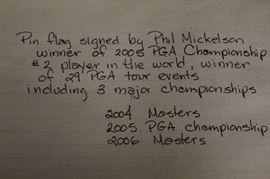 Pin flag signed by Phil Mickelson
winner of 2005 PGA Championship
#2 player in the world, winner
of 29 PGA tour events
including 3 major championships
2004 Masters
2005 PGA championship
2006 Masters